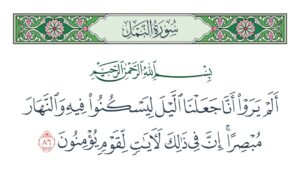 سُورَةُ النَّمۡلِ
بِسۡمِ ٱللَّهِ ٱلرَّحۡمَٰنِ ٱلرَّحِيمِ
أَلَمۡ يَرَوۡاْ أَنَّا جَعَلۡنَا ٱلَّيۡلَ لِيَسۡكُنُواْ فِيهِ وَٱلنَّهَارَ
مُبۡصِرًاۚ إِنَّ فِي ذَٰلِكَ لَأٓيَٰتٖ لِّقَوۡمٖ يُؤۡمِنُونَ ٨٦